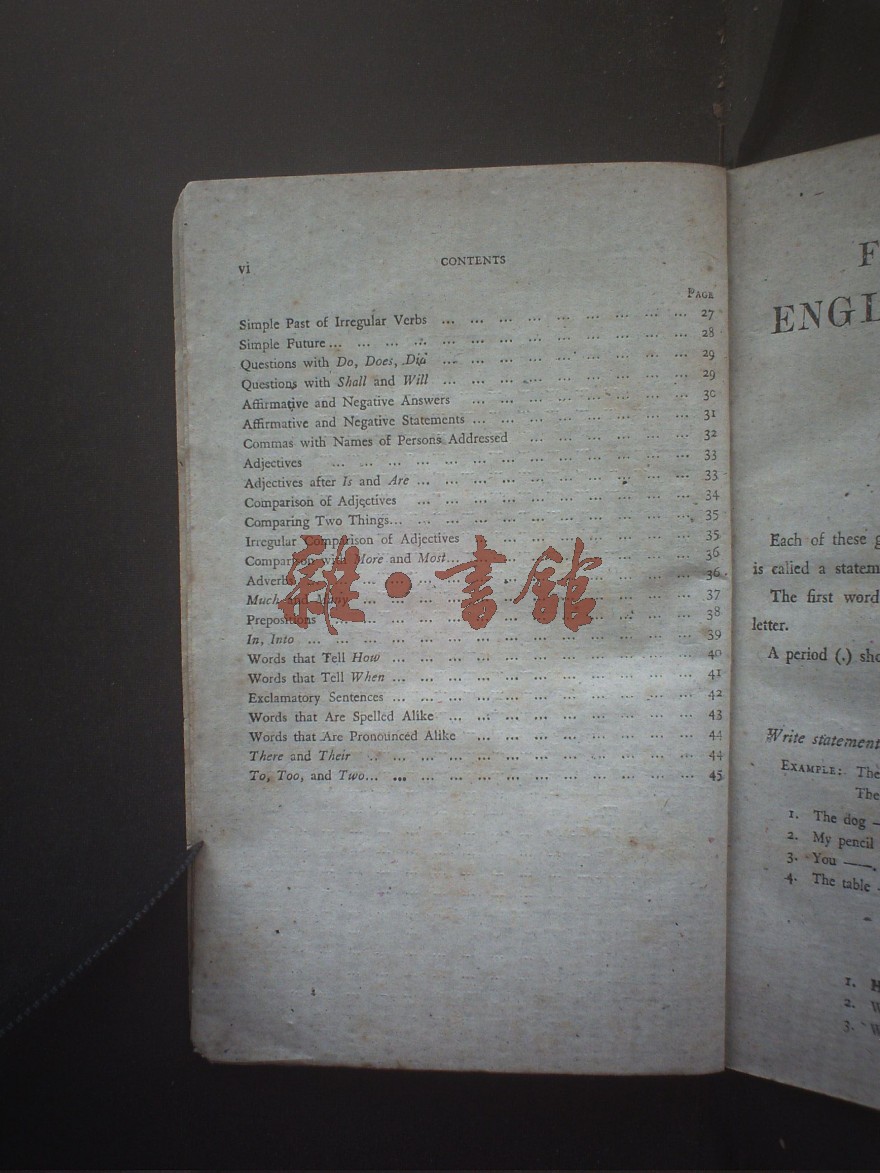 vi
CONTENTS
PAGE
Simple Past of Irregular Verbs ... ... ... ... ... ... ... ... ... 27
Simple Future ... ... ... ... ... ... ... ... ... ... ... ... 28
Questions with Do, Does, Did ... ... ... ... ... ... ... ... ... 29
Questions with Shall and Will ... ... ... ... ... ... ... ... ... 29
Affirmative and Negative Answers ... ... ... ... ... ... ... ... 30
Affirmative and Negative Statements ... ... ... ... ... ... ... ... 31
Commas with Names of Persons Addressed ... ... ... ... ... ... 32
Adjectives ... ... ... ... ... ... ... ... ... ... ... ... ... 33
Adjectives after Is and Are ... ... ... ... ... ... ... ... ... ... 33
Comparison of Adjectives ... ... ... ... ... ... ... ... ... ... 34
Comparing Two Things... ... ... ... ... ... ... ... ... ... ... 35
Irregular Comparison of Adjectives ... ... ... ... ... ... ... ... 35
Comparison with More and Most... ... ... ... ... ... ... ... ... 36
Adverbs ... ... ... ... ... ... ... ... ... ... ... ... ... 36
Much and Many ... ... ... ... ... ... ... ... ... ... ... ... 37
Prepositions ... ... ... ... ... ... ... ... ... ... ... ... 38
In, Into ... ... ... ... ... ... ... ... ... ... ... ... ... 39
Words that Tell How ... ... ... ... ... ... ... ... ... ... ... 40
Words that Tell When ... ... ... ... ... ... ... ... ... ... ... 41
Exclamatory Sentences ... ... ... ... ... ... ... ... ... ... ... 42
Words that Are Spelled Alike ... ... ... ... ... ... ... ... ... 43
Words that Are Pronounced Alike ... ... ... ... ... ... ... ... 44
There and Their ... ... ... ... ... ... ... ... ... ... ... ... 44
To, Too, and Two... ... ... ... ... ... ... ... ... ... ... ... 45
雜·書館
F
ENGL
Each of these
is called a statem
The first word
letter.
A period (.) sho
Write statement
EXAMPLE: The
The
1. The dog —
2. My pencil
3. You ——.
4. The table
1. H
2. W
3. W